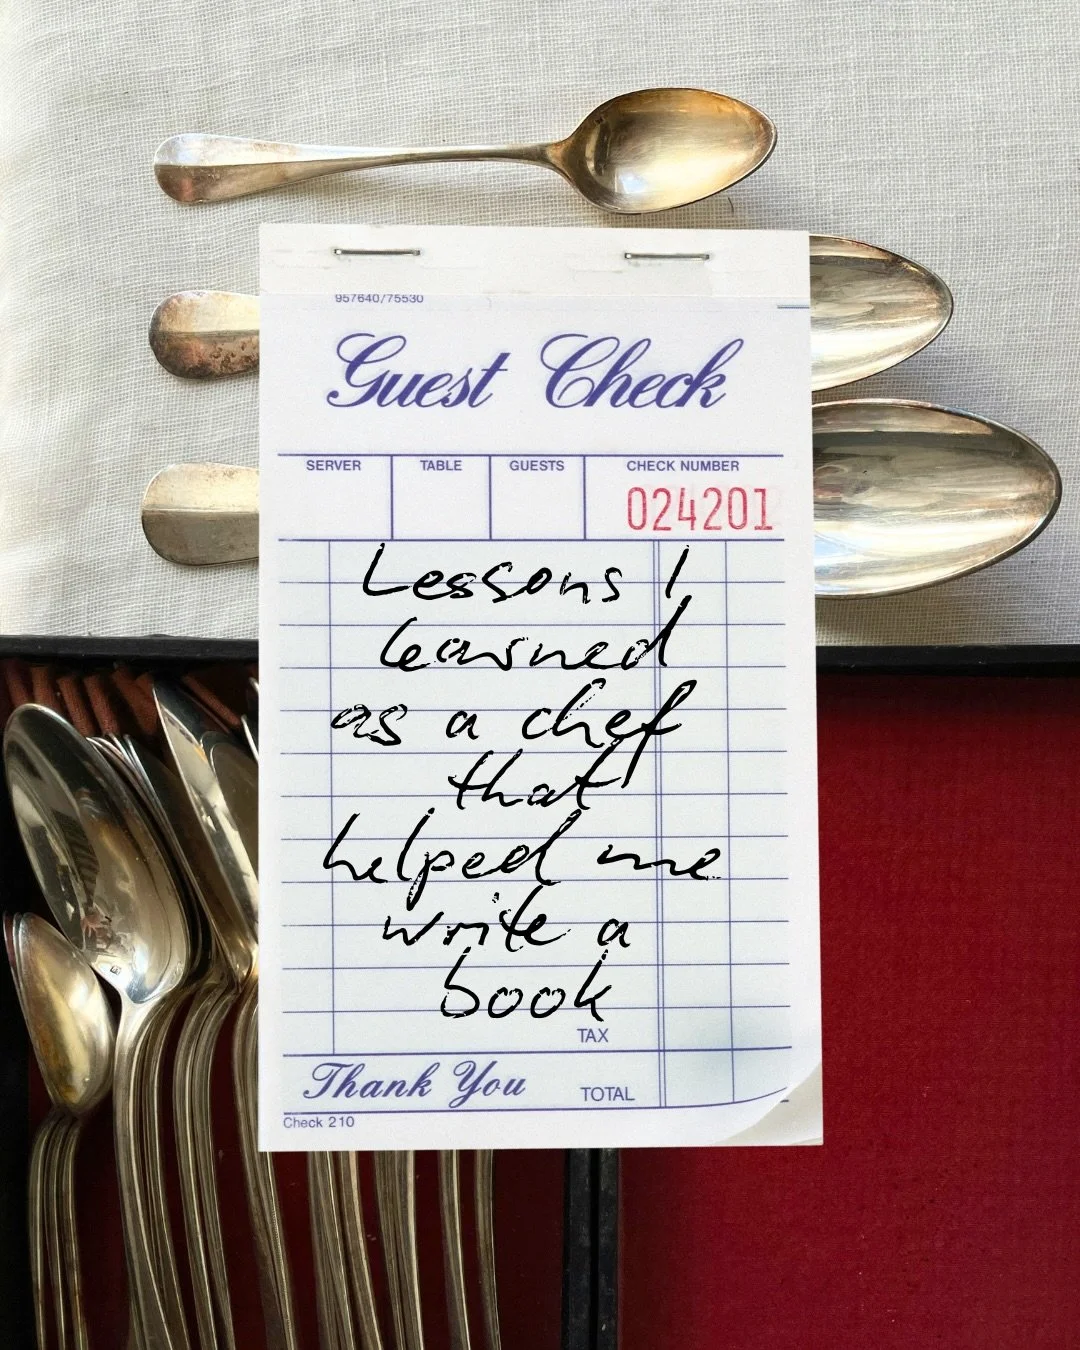 957640/75530
Guest Check
SERVER TABLE GUESTS CHECK NUMBER
024201
Lessons I
learned
as a chef
that
helped me
write a
book
TAX
Thank You TOTAL
Check 210